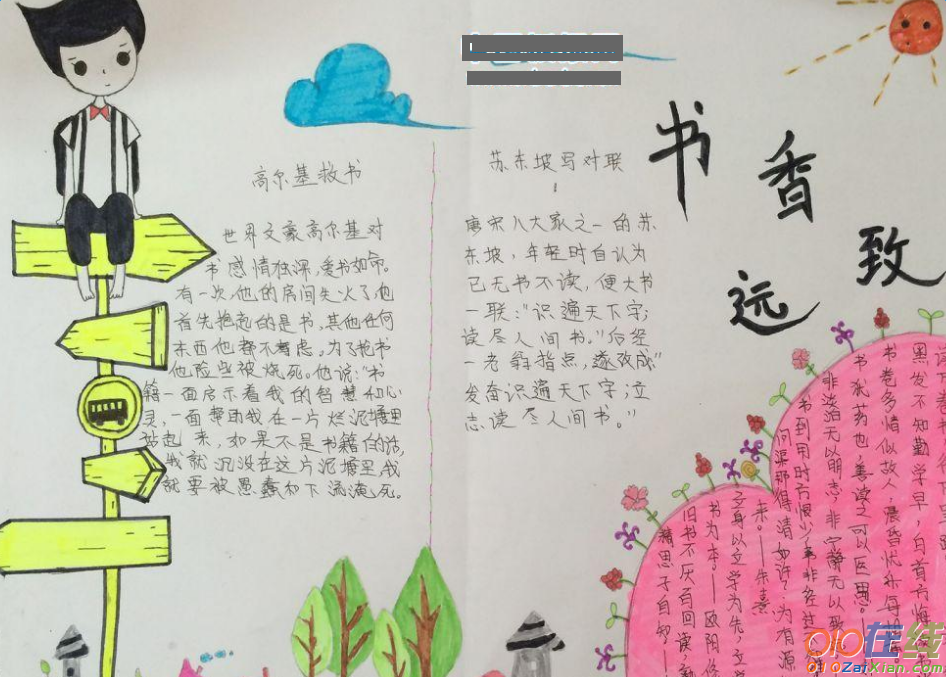 书香致远
高尔基救书
世界文豪高尔基对
书感情独深,爱书如命。
有一次,他的房间失火了,他
首先抱起的是书,其他任何
东西他都不考虑。为了抢书
他险些被烧死。他说:“书
籍一面启示着我的智慧和心
灵,一面帮助我在一片烂泥塘里
站起来,如果不是书籍的话,
我就沉没在这片泥塘里,我
就要被愚蠢和下流淹死。
苏东坡写对联
唐宋八大家之一的苏
东坡,年轻时自认为
已无书不读,便大书
一联:“识遍天下字;
读尽人间书。”后经
一老翁指点,遂改成“
发奋识遍天下字;立
志读尽人间书。”
黑发不知勤学早,白首方悔
书卷多情似故人,晨昏忧乐每
书犹药也,善读之可以医愚。
非淡泊无以明志,非宁静无以致
书到用时方恨少,事非经过
问渠那得清如许?为有源
来。——朱熹
立身以立学为先,立学
书为本。——欧阳修
旧书不厌百回读,熟
精思子自知。
010在线
010ZaiXian.com